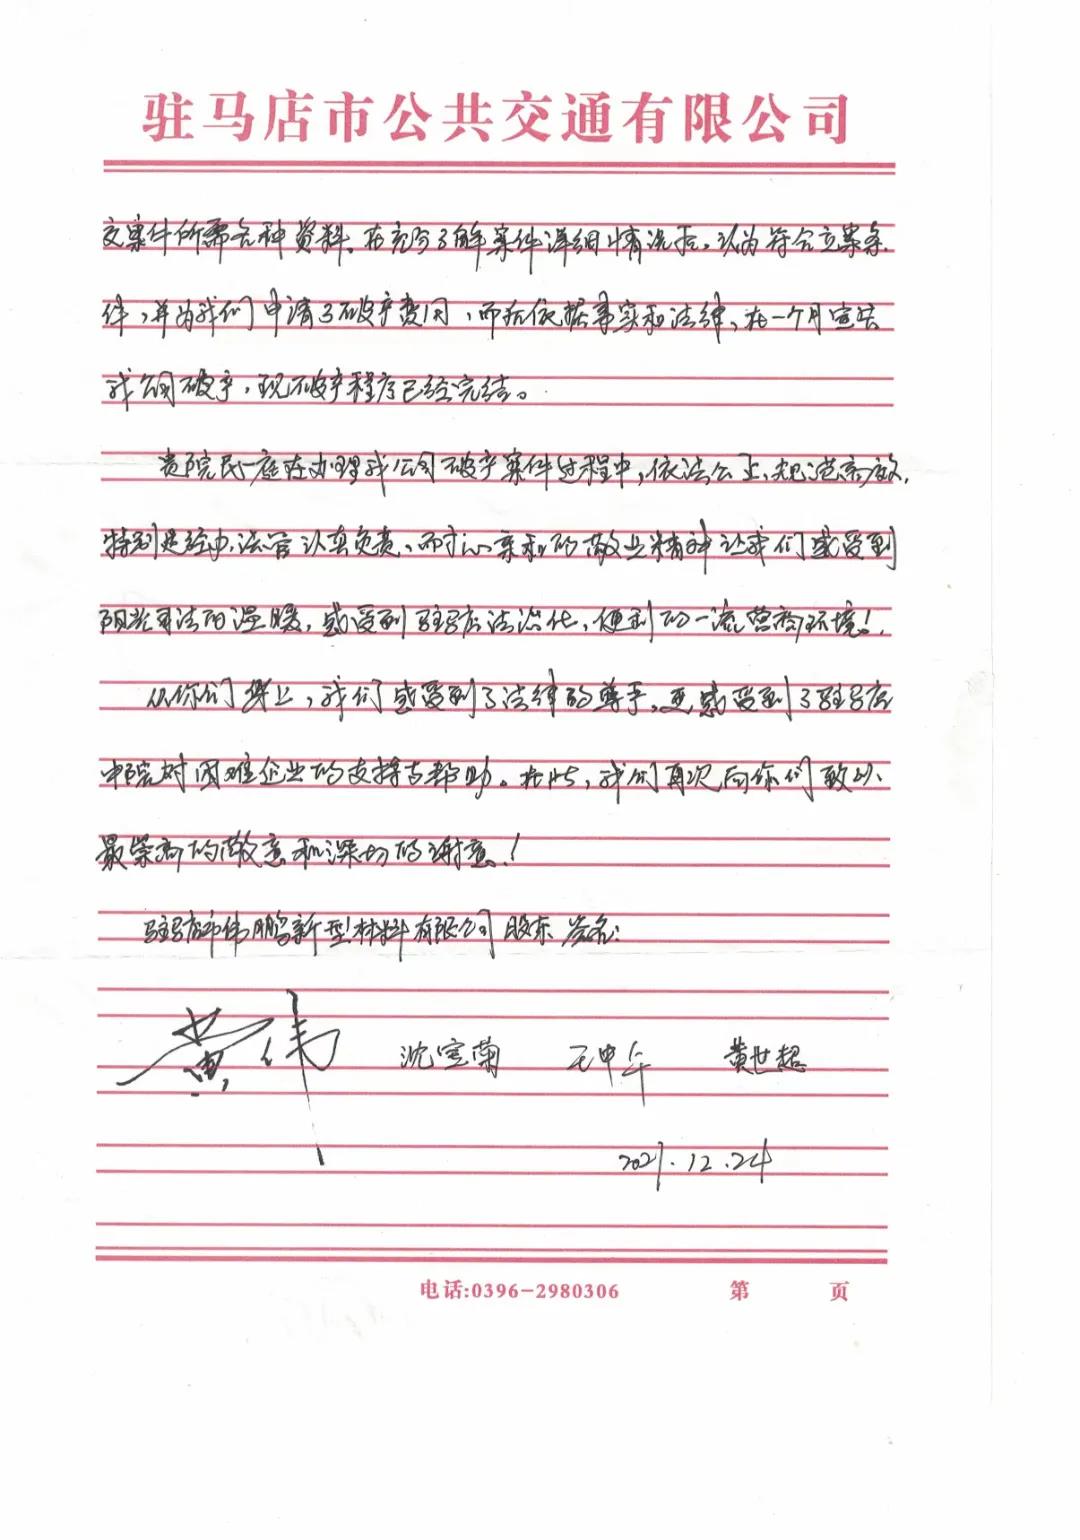 驻马店市公共交通有限公司
交案件所需各种资料、在充分了解案件详细情况后,认为符合立案条
件,并为我们申请了破产费用,而后依据事实和法律,在一个月宣告
我公司破产,现破产程序已经完结。
贵院民一庭在办理我公司破产案件过程中,依法公正、规范高效,
特别是经办法官认真负责、耐心亲和的敬业精神让我们感受到
阳光司法的温暖,感受到驻马店法治化、便利的一流营商环境!
从你们身上,我们感受到了法律的尊严,更感受到了驻马店
中院对困难企业的支持与帮助。在此,我们再次向你们致以
最崇高的敬意和深切的谢意!
驻马店市伟鹏新型材料有限公司股东签名:
黄伟 沈宝菊 王中年 黄世超
2021.12.24
电话:0396-2980306 第 页